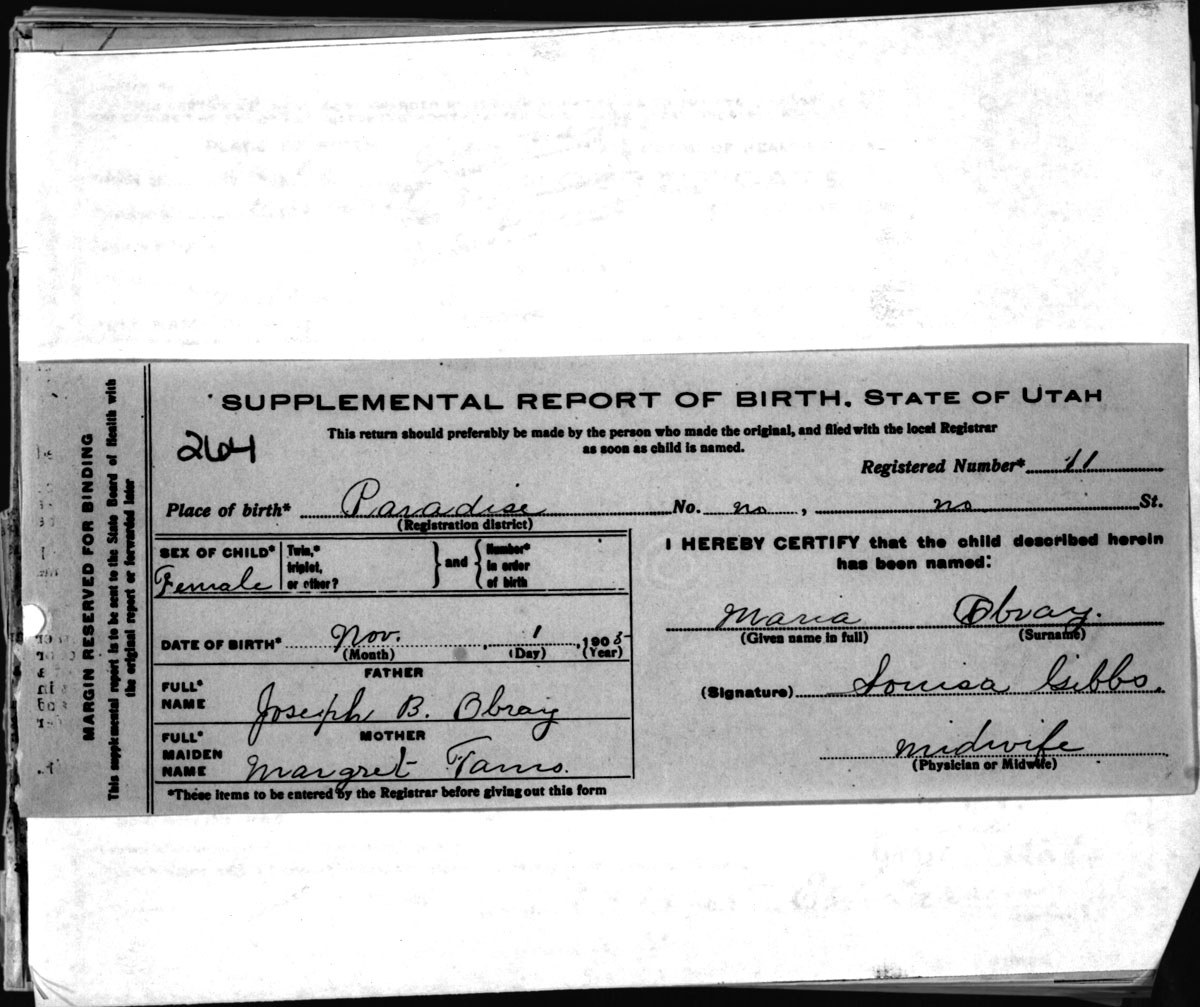 SUPPLEMENTAL REPORT OF BIRTH. STATE OF UTAH
264
This return should preferably be made by the person who made the original, and filed with the local Registrar
as soon as child is named.
Registered Number* 11
Place of birth* Paradise No. no , no St.
(Registration district)
SEX OF CHILD* Female
Twin,*
triplet,
or other?
and
Number*
in order
of birth
DATE OF BIRTH* Nov. 1 , 1908
(Month) (Day) (Year)
FATHER
FULL*
NAME
Joseph B. Obray
MOTHER
FULL*
MAIDEN
NAME
Margret Tams.
*These items to be entered by the Registrar before giving out this form
I HEREBY CERTIFY that the child described herein
has been named:
Maria Obray.
(Given name in full) (Surname)
(Signature) Louisa Gibbs.
midwife
(Physician or Midwife)
MARGIN RESERVED FOR BINDING
This supplemental report is to be sent to the State Board of Health with
the original report or forwarded later